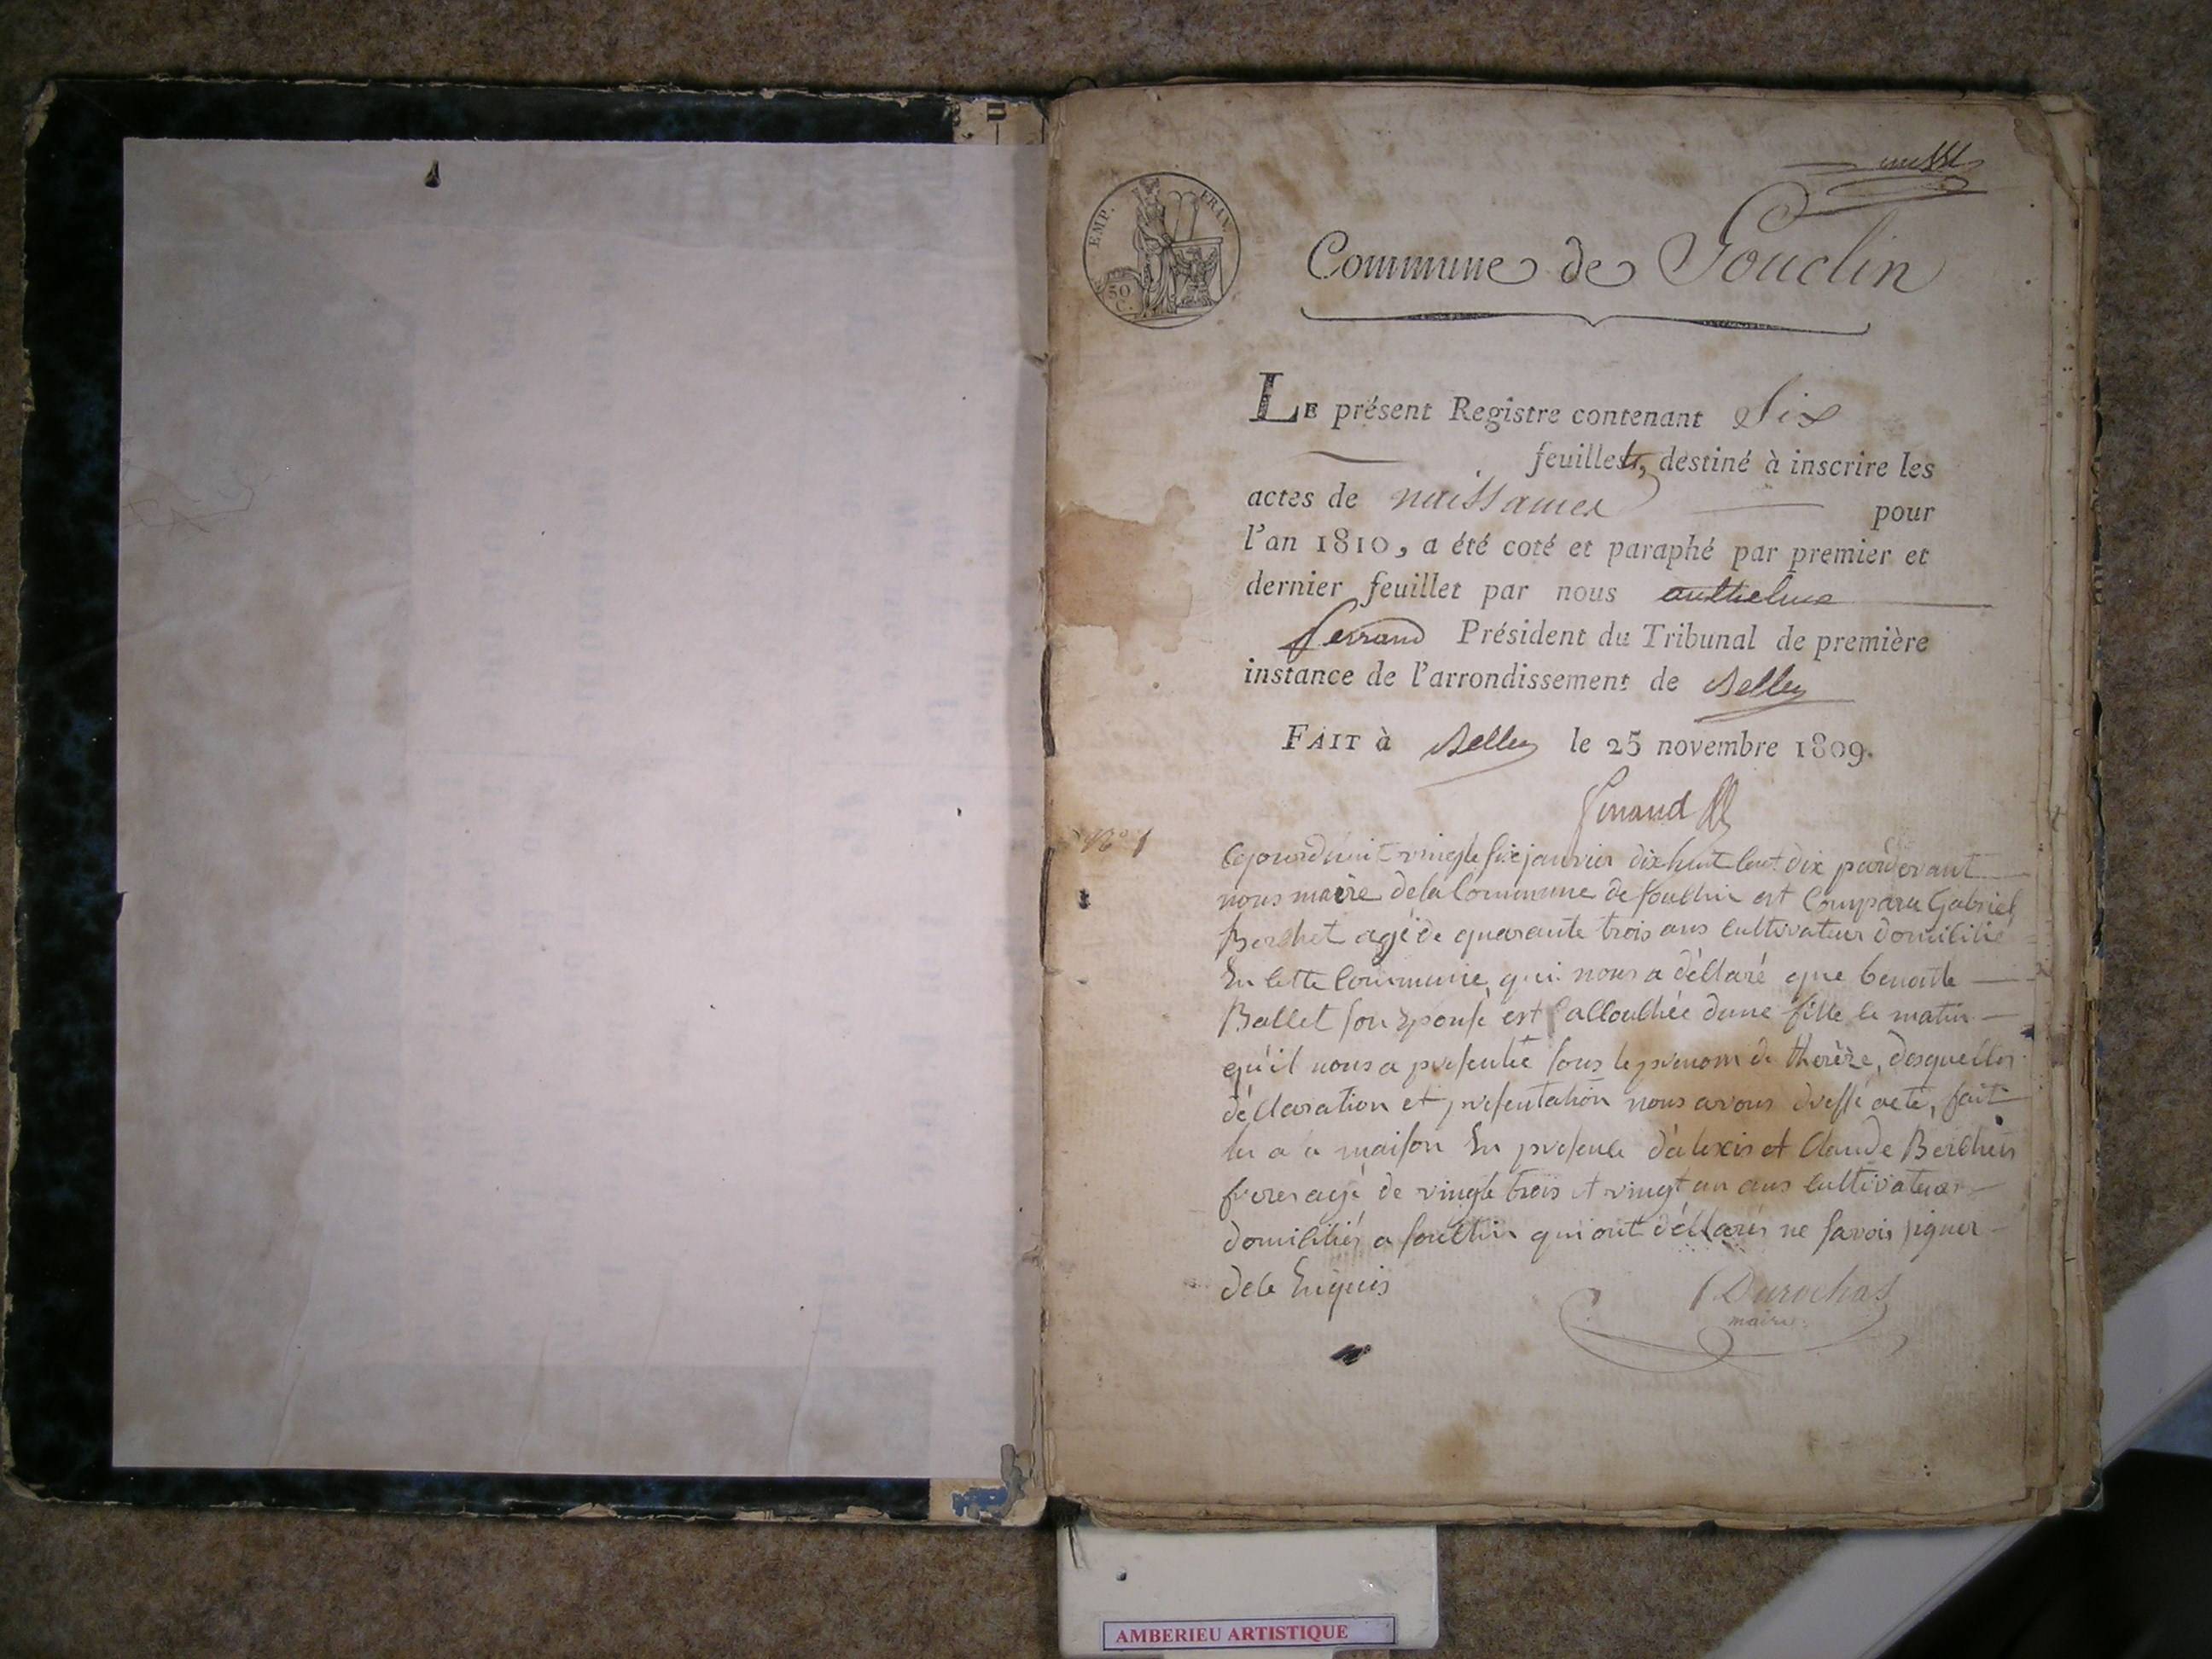 EMP. FRAN.
50
C.
Commune de Souclin
LE présent Registre contenant Six
feuillets, destiné à inscrire les
actes de naissances pour
l'an 1810, a été coté et paraphé par premier et
dernier feuillet par nous anthelme
ferrand Président du Tribunal de première
instance de l'arrondissement de Belley
FAIT à Belley le 25 novembre 1809.
ferrand
N° 1
Cejourduuit vingte six janvier dix huit cent dix pardevant
nous maire de la Commune de souclin est Comparu Gabriel
Berchet agé de quarante trois ans cultivateur domicilié
En cette Commune, qui nous a déclaré que benoite
Ballet son Epouse est accouchée dune fille ce matin
qu'il nous a presentée sous le prenom de therèze, desquelles
déclaration et presentation nous avons dressé acte, fait
en presence d'alexis et Claude Berchet
freres agé de vingte trois et vingt un ans cultivateurs
domiciliés a souclin qui ont déclarés ne savoir signer
de ce Enquis
Durochas
maire
AMBERIEU ARTISTIQUE